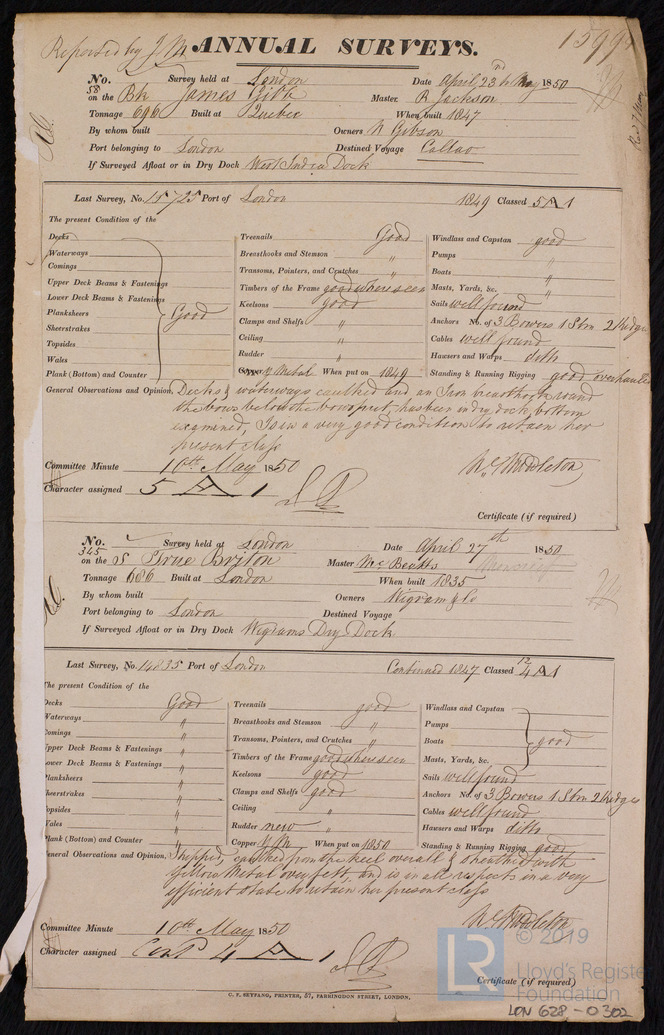 Reported by J. M.
ANNUAL SURVEYS.
No. 58 Survey held at London Date April 23rd to May 1850
on the Bk James Gibb Master R Jackson
Tonnage 696 Built at Quebec When built 1847
By whom built Owners N Gibson
Port belonging to London Destined Voyage Callao
If Surveyed Afloat or in Dry Dock West India Dock
Last Survey, No. 15725 Port of London 1849 Classed 5 A 1
The present Condition of the
Decks
Waterways
Comings
Upper Deck Beams & Fastenings
Lower Deck Beams & Fastenings
Planksheers Good
Sheerstrakes
Topsides
Wales
Plank (Bottom) and Counter
Treenails Good
Breasthooks and Stemson "
Transoms, Pointers, and Crutches "
Timbers of the Frame good where seen
Keelsons good
Clamps and Shelfs "
Ceiling "
Rudder "
Copper Y Metal When put on 1849
Windlass and Capstan good
Pumps "
Boats "
Masts, Yards, &c. "
Sails well found
Anchors No. of 3 Bowers 1 Strm 2 Kedges
Cables well found
Hawsers and Warps ditto
Standing & Running Rigging good overhauled
General Observations and Opinion, Decks & waterways caulked and an Iron breasthook round
the bows below the bowsprit, has been in dry dock bottom
examined, is in a very good condition to retain her
present class
Committee Minute 10th May 1850
Character assigned 5 A 1
Certificate (if required)
No. 345 Survey held at London Date April 27th 1850
on the S True Briton Master Mc Beatts
Tonnage 686 Built at London When built 1835
By whom built Owners Wigram & Co
Port belonging to London Destined Voyage
If Surveyed Afloat or in Dry Dock Wigrams Dry Dock
Last Survey, No. 14835 Port of London Continued 1847 Classed 12 4 A 1
The present Condition of the
Decks Good
Waterways "
Comings "
Upper Deck Beams & Fastenings "
Lower Deck Beams & Fastenings "
Planksheers "
Sheerstrakes "
Topsides "
Wales "
Plank (Bottom) and Counter "
Treenails good
Breasthooks and Stemson "
Transoms, Pointers, and Crutches "
Timbers of the Frame good where seen
Keelsons good
Clamps and Shelfs good
Ceiling "
Rudder new
Copper Y M When put on 1850
Windlass and Capstan
Pumps
Boats good
Masts, Yards, &c.
Sails well found
Anchors No. of 3 Bowers 1 Strm 2 Kedges
Cables well found
Hawsers and Warps ditto
Standing & Running Rigging good
General Observations and Opinion, Stripped, caulked from the keel overall & sheathed with
Yellow Metal over felt, and is in all respects in a very
efficient state to retain her present class
Committee Minute 10th May 1850
Character assigned Contd 4 A 1
Certificate (if required)
C. F. SEYFANG, PRINTER, 57, FARRINGDON STREET, LONDON.
© 2019
LR
Lloyd's Register
Foundation
LON 628-0302